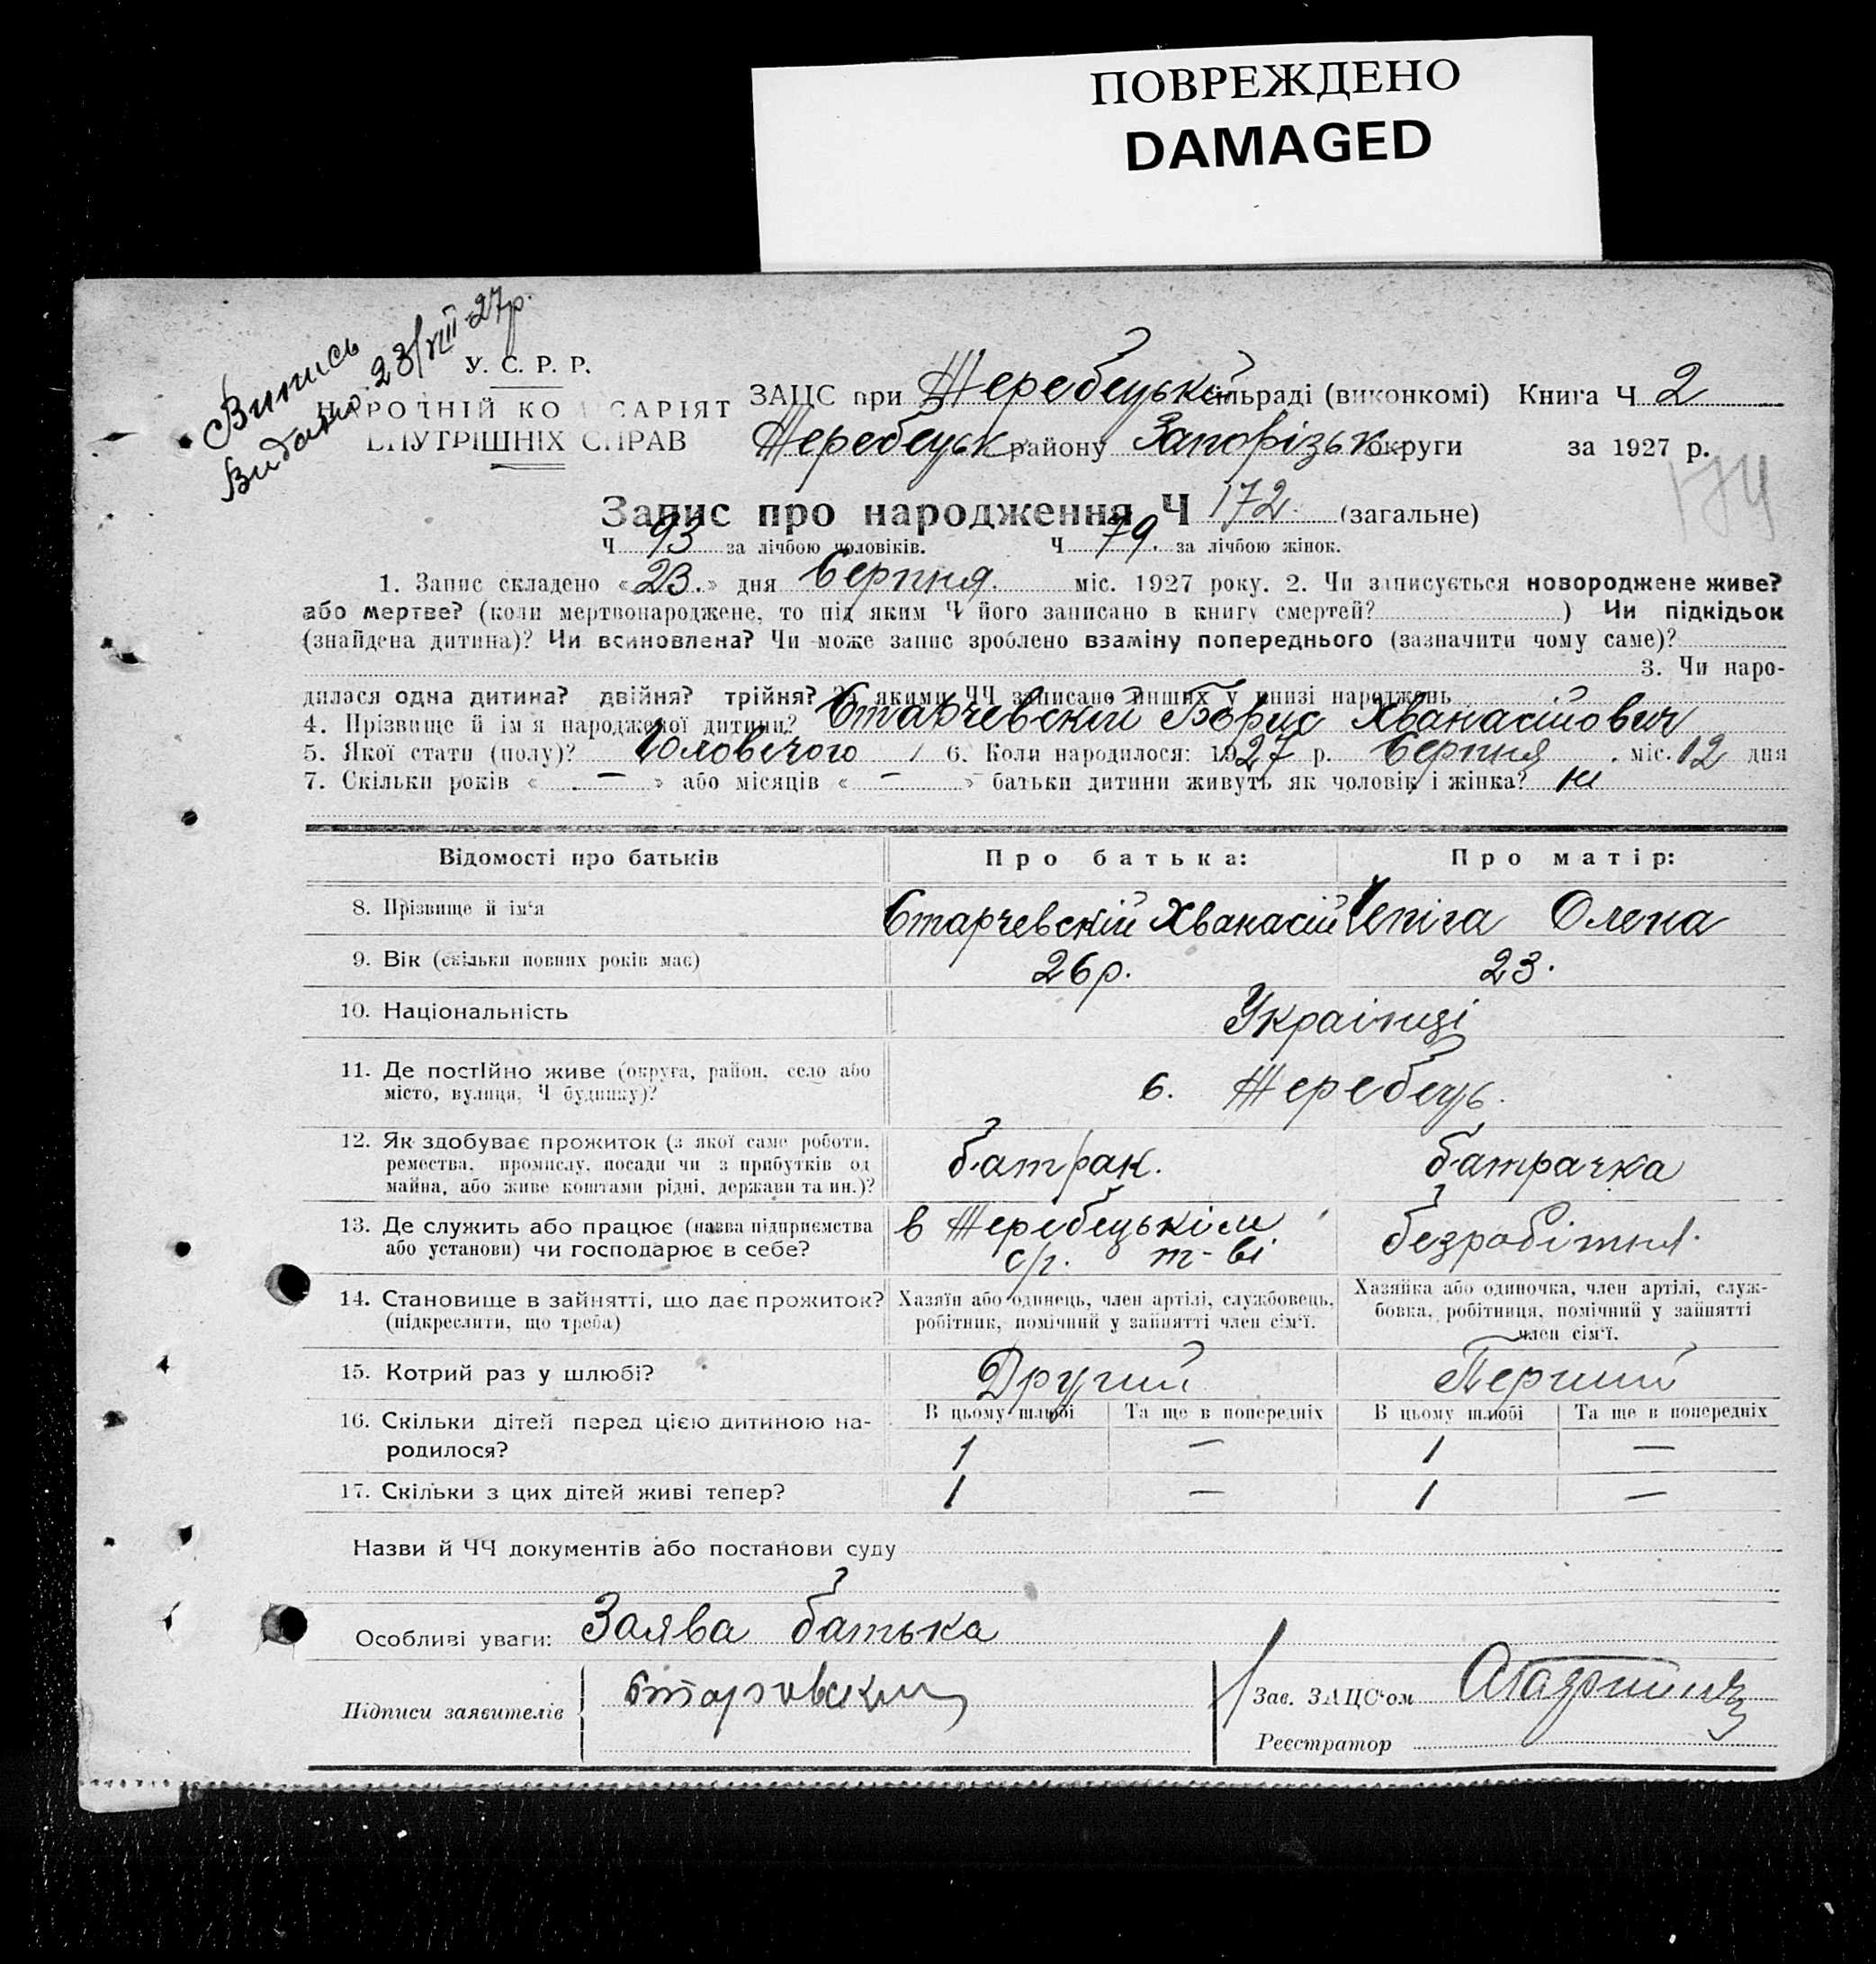 ПОВРЕЖДЕНО
DAMAGED
Випись
Видано 23/VIII-27р.
У. С. Р. Р.
НАРОДНІЙ КОМІСАРІЯТ
ВНУТРІШНІХ СПРАВ
ЗАЦС при Жеребецькій сільраді (виконкомі) Книга Ч 2
Жеребецьк району Запорізьк округи за 1927 р.
174
Запис про народження Ч 172. (загальне)
Ч 93 за лічбою чоловіків. Ч 79. за лічбою жінок.
1. Запис складено «23.» дня Серпня. міс. 1927 року. 2. Чи записується новороджене живе?
або мертве? (коли мертвонароджене, то під яким Ч його записано в книгу смертей? ) Чи підкідьок
(знайдена дитина)? Чи всиновлена? Чи може запис зроблено взаміну попереднього (зазначити чому саме)?
3. Чи наро-
дилася одна дитина? двійня? трійня? За якими ЧЧ записано инших у книзі народжень
4. Прізвище й ім'я народженої дитини? Старчевскій Борис Хванасійович
5. Якої стати (полу)? Чоловічого 6. Коли народилося: 1927 р. Серпня . міс. 12 дня
7. Скільки років « — » або місяців « — » батьки дитини живуть як чоловік і жінка?
Відомості про батьків Про батька: Про матір:
8. Прізвище й ім'я Старчевскій Хванасій Чепіга Олена
9. Вік (скільки повних років має) 26р. 23.
10. Національність Українці
11. Де постійно живе (округа, район, село або
місто, вулиця, Ч будинку)? с. Жеребець.
12. Як здобуває прожиток (з якої саме роботи,
ремества, промислу, посади чи з прибутків од
майна, або живе коштами рідні, держави та ин.)? батрак. батрачка
13. Де служить або працює (назва підприємства
або установи) чи господарює в себе? в Жеребецькім
с/г. т-ві безробітня.
14. Становище в зайнятті, що дає прожиток?
(підкреслити, що треба)
Хазяїн або одинець, член артілі, службовець,
робітник, помічний у зайнятті член сім'ї.
Хазяйка або одиночка, член артілі, служ-
бовка, робітниця, помічний у зайнятті
член сім'ї.
15. Котрий раз у шлюбі? Другий Перший
16. Скільки дітей перед цією дитиною на-
родилося?
В цьому шлюбі Та ще в попередніх В цьому шлюбі Та ще в попередніх
1 — 1 —
17. Скільки з цих дітей живі тепер? 1 — 1 —
Назви й ЧЧ документів або постанови суду
Особливі уваги: Заява батька
Підписи заявителів
Зав. ЗАЦС'ом
Реєстратор